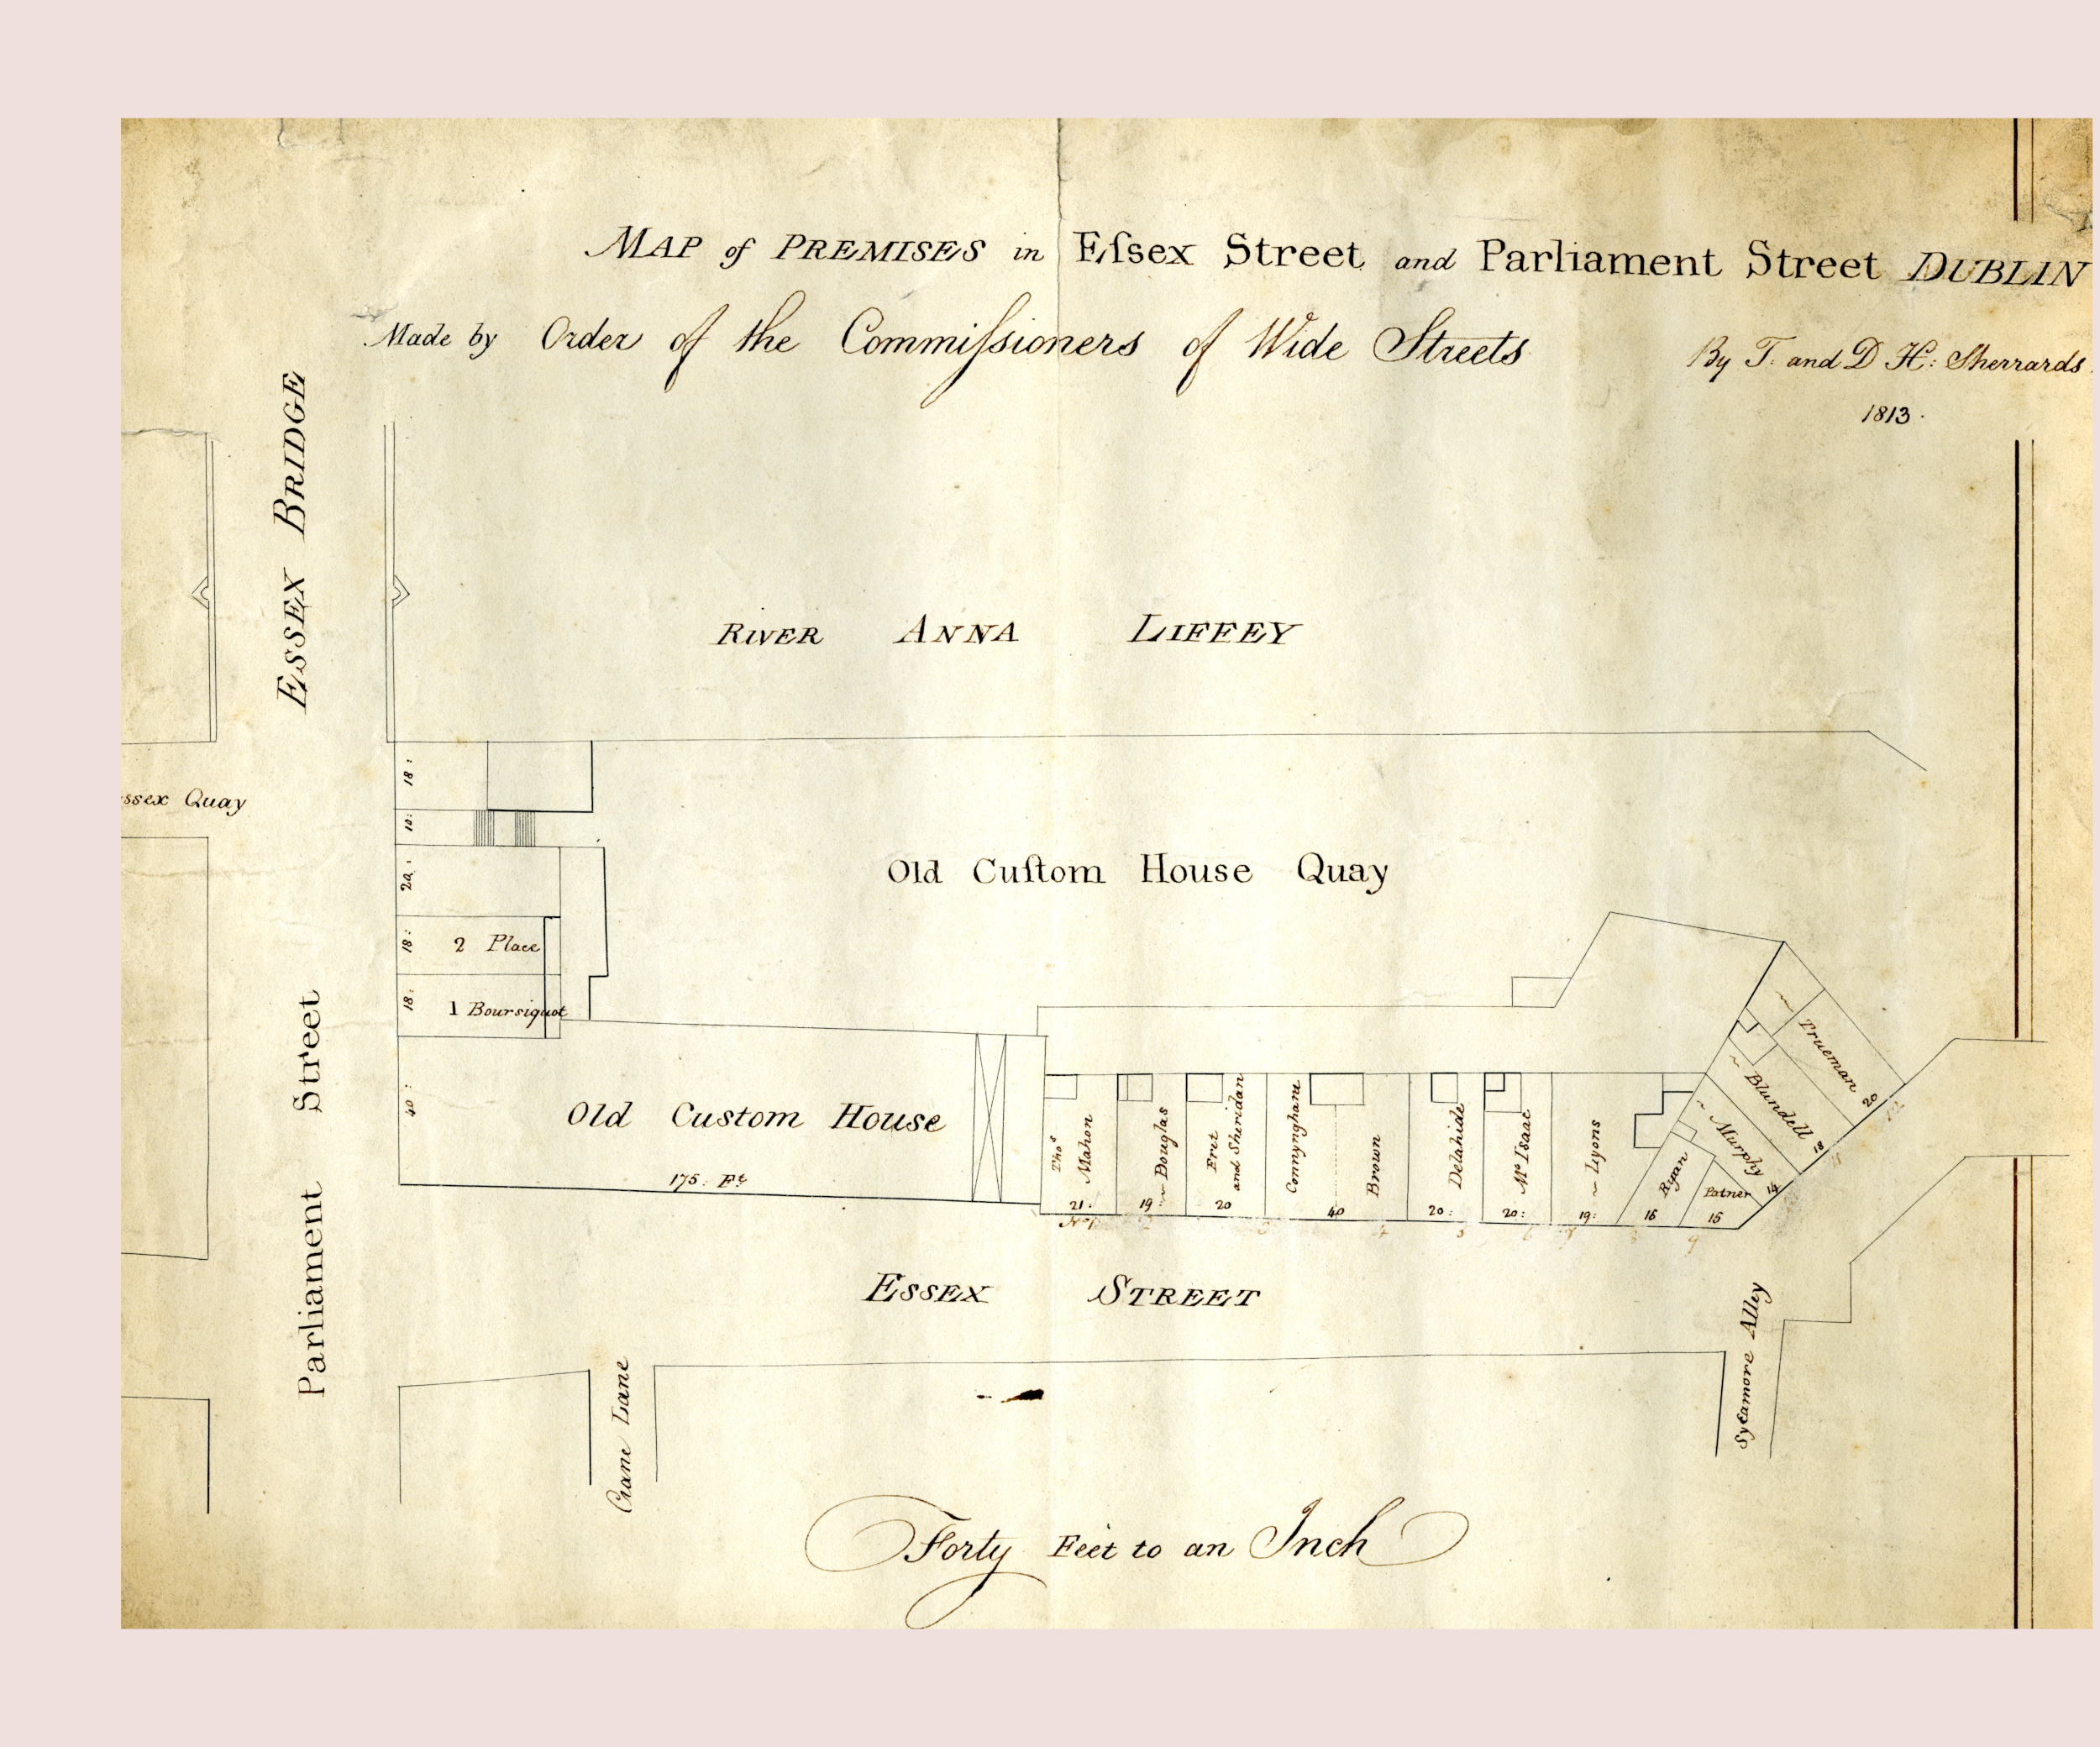 MAP of PREMISES in Eſsex Street and Parliament Street DUBLIN
Made by Order of the Commiſsioners of Wide Streets
By T. and D H: Sherrards.
1813.
ESSEX BRIDGE
RIVER ANNA LIFFEY
ssex Quay
18:
10:
20:
18: 2 Place
18: 1 Boursiquot
40:
Old Cuſtom House Quay
Old Custom House
175: Ft
Parliament Street
Thos Mahon
21:
No 1
Douglas
19:
2
Eret and Sheridan
20
Connynghane
3
40
Brown
4
Delahide
20:
5
Mc Isaac
20:
6
Lyons
19:
7
Ryan
16
8
Patner
15
9
Murphy
14
Blundell
18
11
Trueman
20
12
ESSEX STREET
Crane Lane
Sycamore Alley
Forty Feet to an Inch